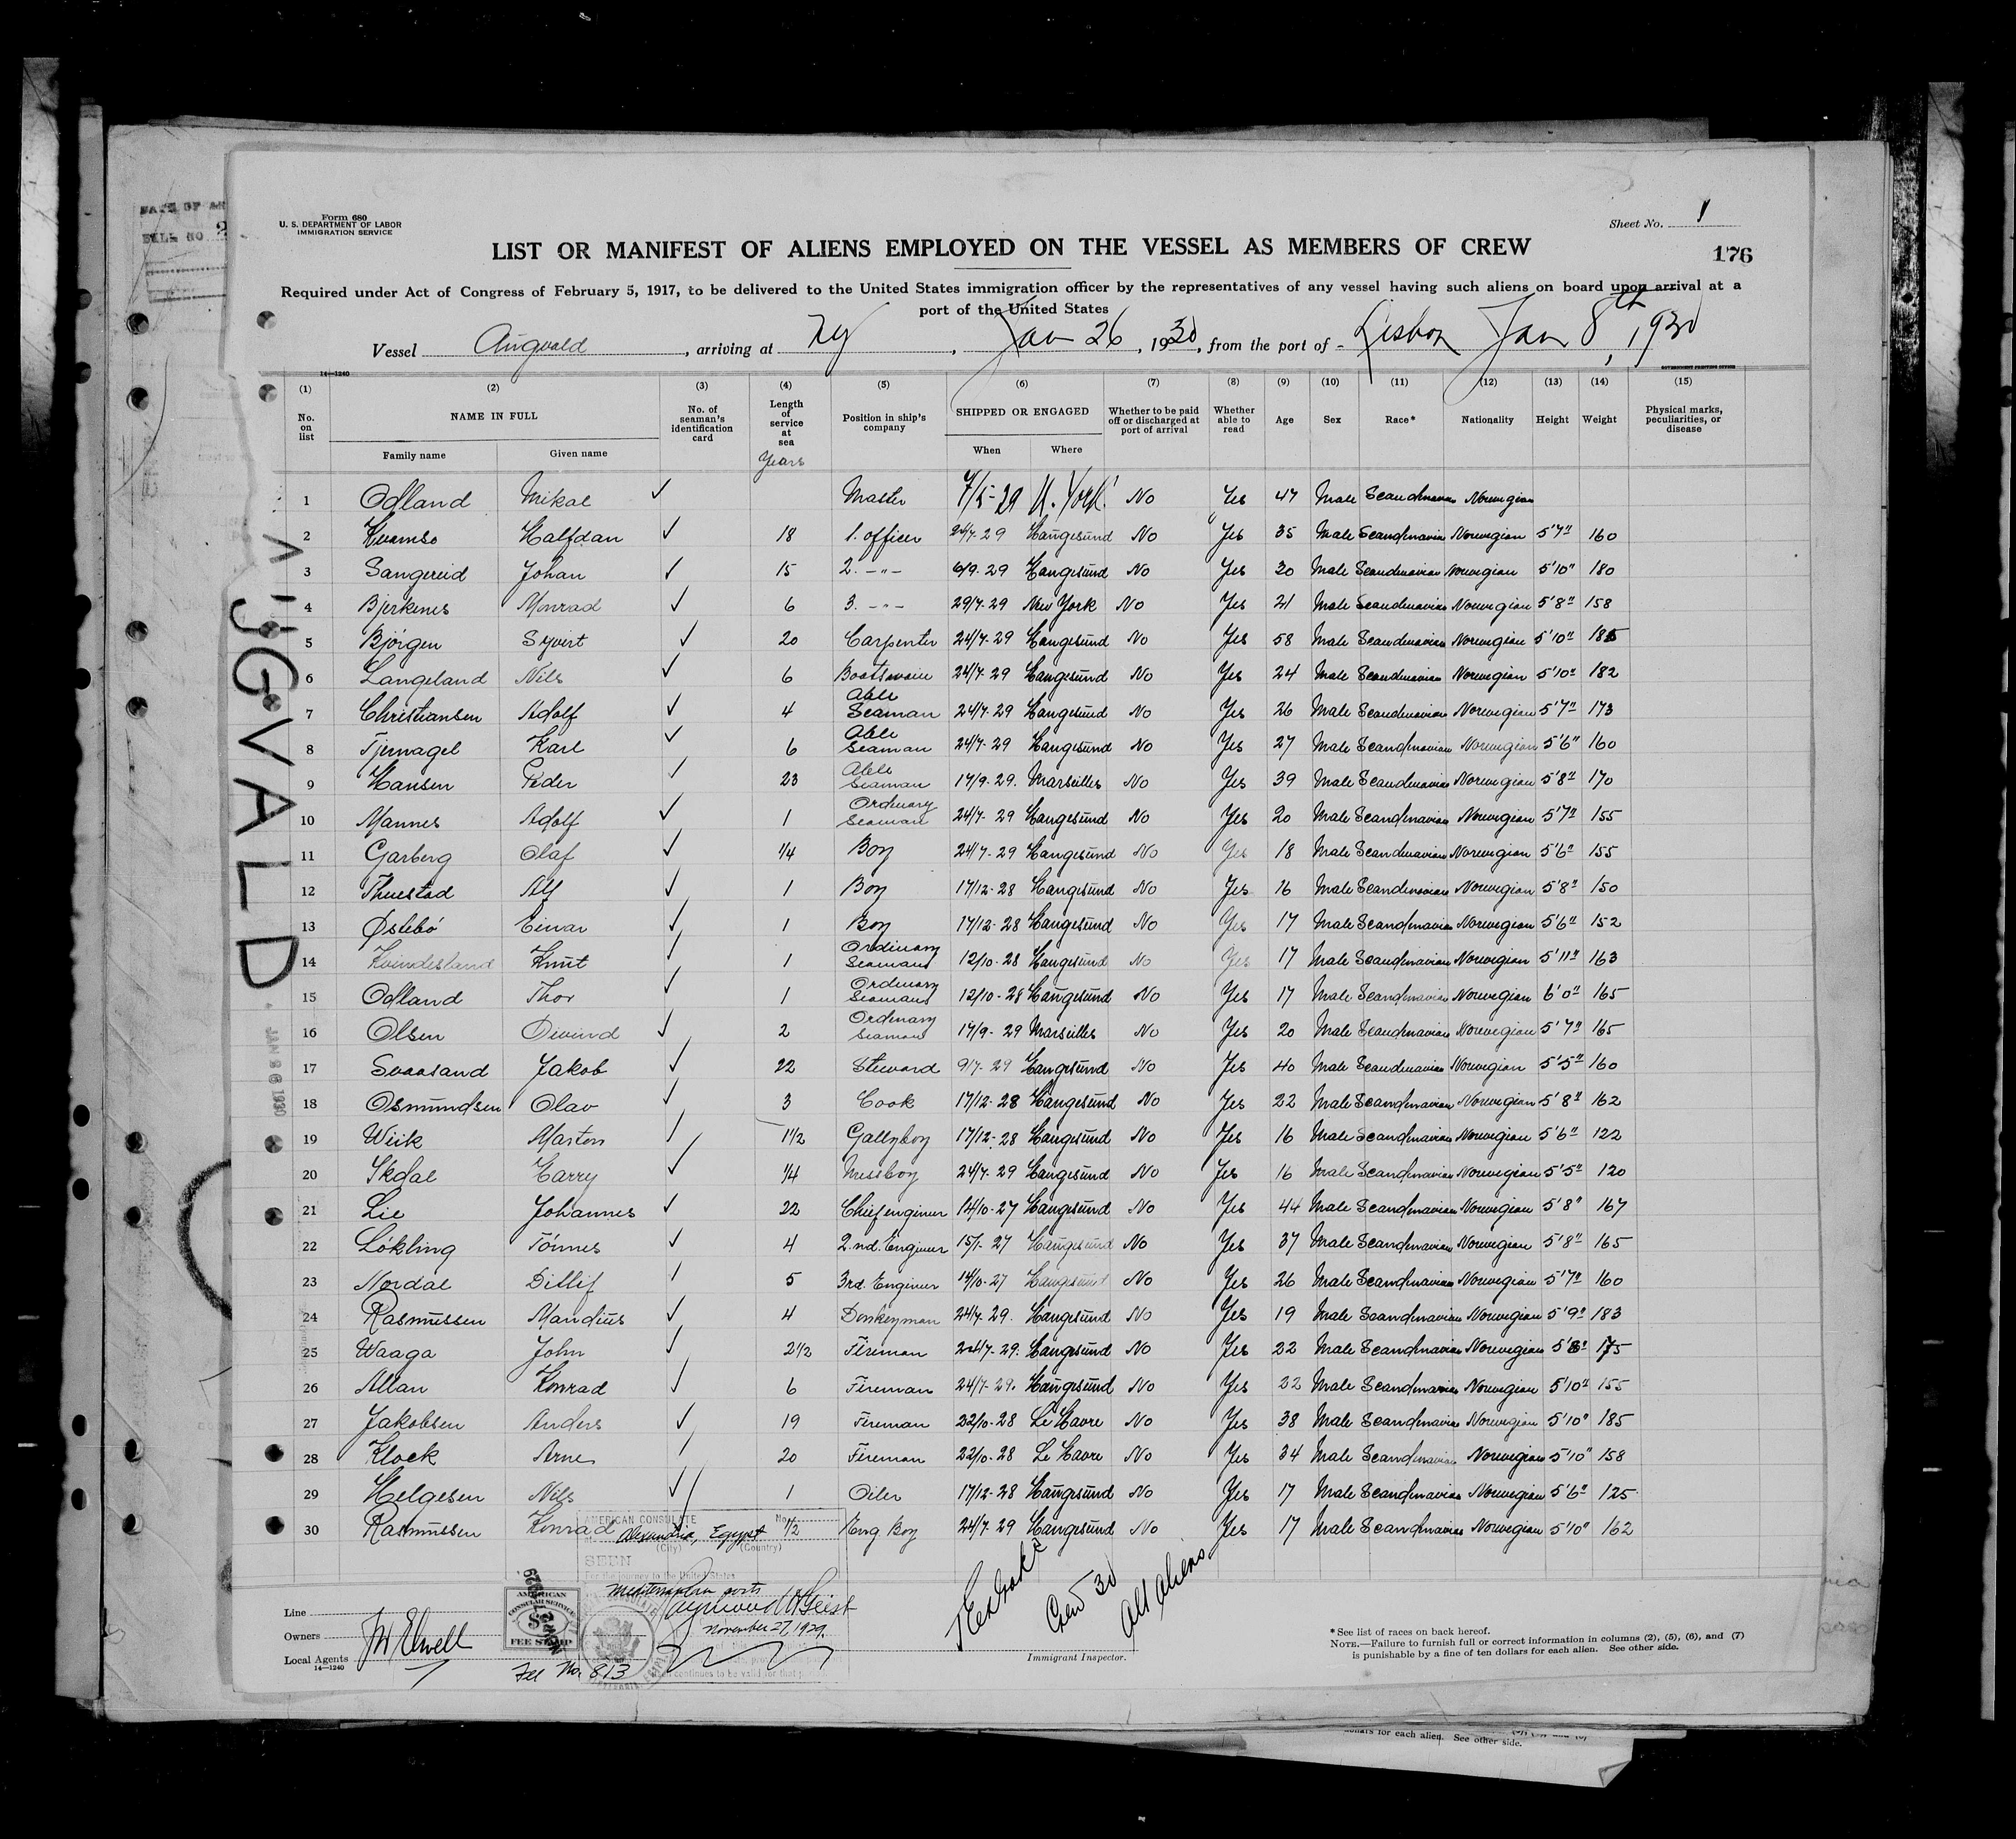 DATE OF AR
BILL NO 2
Form 680
U. S. DEPARTMENT OF LABOR
IMMIGRATION SERVICE
Sheet No. 1
LIST OR MANIFEST OF ALIENS EMPLOYED ON THE VESSEL AS MEMBERS OF CREW
176
Required under Act of Congress of February 5, 1917, to be delivered to the United States immigration officer by the representatives of any vessel having such aliens on board upon arrival at a
port of the United States
Vessel Augvald, arriving at Ny, Jan 26, 1930, from the port of Lisbon Jan 8th, 1930
14—1240
GOVERNMENT PRINTING OFFICE
(1) (2) (3) (4) (5) (6) (7) (8) (9) (10) (11) (12) (13) (14) (15)
No. on list NAME IN FULL No. of seaman's identification card Length of service at sea Position in ship's company SHIPPED OR ENGAGED Whether to be paid off or discharged at port of arrival Whether able to read Age Sex Race* Nationality Height Weight Physical marks, peculiarities, or disease
Family name Given name Years When Where
1 Odland Mikal ✓ Master 7/5-29 N. York No Yes 47 Male Scandinavian Norwegian
2 Kvamso Halfdan ✓ 18 1. officer 24/7-29 Haugesund No Yes 35 Male Scandinavian Norwegian 5'7" 160
3 Sangereid Johan ✓ 15 2. -"- 6/9-29 Haugesund No Yes 30 Male Scandinavian Norwegian 5'10" 180
4 Bjerkenes Monrad ✓ 6 3. -"- 29/7-29 New York No Yes 21 Male Scandinavian Norwegian 5'8" 158
5 Bjørgen Syvert ✓ 20 Carpenter 24/7-29 Haugesund No Yes 58 Male Scandinavian Norwegian 5'10" 185
6 Langeland Nils ✓ 6 Boatswain 24/7-29 Haugesund No Yes 24 Male Scandinavian Norwegian 5'10" 182
7 Christiansen Adolf ✓ 4 Able Seaman 24/7-29 Haugesund No Yes 26 Male Scandinavian Norwegian 5'7" 173
8 Tjernagel Karl ✓ 6 Able Seaman 24/7-29 Haugesund No Yes 27 Male Scandinavian Norwegian 5'6" 160
9 Hansen Peder ✓ 23 Able Seaman 17/9-29. Marseilles No Yes 39 Male Scandinavian Norwegian 5'8" 170
10 Mannes Adolf ✓ 1 Ordinary Seaman 24/7-29 Haugesund No Yes 20 Male Scandinavian Norwegian 5'7" 155
11 Garberg Olaf ✓ 1/4 Boy 24/7-29 Haugesund No Yes 18 Male Scandinavian Norwegian 5'6" 155
12 Thuestad Alf ✓ 1 Boy 17/12-28 Haugesund No Yes 16 Male Scandinavian Norwegian 5'8" 150
13 Østebó Einar ✓ 1 Boy 17/12-28 Haugesund No Yes 17 Male Scandinavian Norwegian 5'6" 152
14 Kvindesland Knut ✓ 1 Ordinary Seaman 12/10-28 Haugesund No Yes 17 Male Scandinavian Norwegian 5'11" 163
15 Odland Thor ✓ 1 Ordinary Seaman 12/10-28 Haugesund No Yes 17 Male Scandinavian Norwegian 6'0" 165
16 Olsen Oivind ✓ 2 Ordinary Seaman 17/9-29 Marseilles No Yes 20 Male Scandinavian Norwegian 5'7" 165
17 Svaasand Jakob ✓ 22 Steward 9/7-29 Haugesund No Yes 40 Male Scandinavian Norwegian 5'5" 160
18 Osmundsen Olav ✓ 3 Cook 17/12-28 Haugesund No Yes 22 Male Scandinavian Norwegian 5'8" 162
19 Wiik Marton ✓ 1 1/2 Gallyboy 17/12-28 Haugesund No Yes 16 Male Scandinavian Norwegian 5'6" 122
20 Skdal Harry ✓ 1/4 Messboy 24/7-29 Haugesund No Yes 16 Male Scandinavian Norwegian 5'5" 120
21 Lie Johannes ✓ 22 Chiefenginer 14/10-27 Haugesund No Yes 44 Male Scandinavian Norwegian 5'8" 167
22 Lókling Tónnes ✓ 4 2.nd. Enginer 15/1-27 Haugesund No Yes 37 Male Scandinavian Norwegian 5'8" 165
23 Nordal Ditlif ✓ 5 3rd. Enginer 14/10-27 Haugesund No Yes 26 Male Scandinavian Norwegian 5'7" 160
24 Rasmussen Mandius ✓ 4 Donkeyman 24/7-29. Haugesund No Yes 19 Male Scandinavian Norwegian 5'9" 183
25 Waaga John ✓ 2 1/2 Fireman 24/7-29. Haugesund No Yes 22 Male Scandinavian Norwegian 5'8" 175
26 Allan Konrad ✓ 6 Fireman 24/7-29. Haugesund No Yes 22 Male Scandinavian Norwegian 5'10" 155
27 Jakobsen Anders ✓ 19 Fireman 22/10-28 Le Havre No Yes 38 Male Scandinavian Norwegian 5'10" 185
28 Klock Arne ✓ 20 Fireman 22/10-28 Le Havre No Yes 34 Male Scandinavian Norwegian 5'10" 158
29 Helgesen Nils ✓ 1 Oiler 17/12-28 Haugesund No Yes 17 Male Scandinavian Norwegian 5'6" 125
30 Rasmussen Konrad ✓ 1/2 Eng Boy 24/7-29 Haugesund No Yes 17 Male Scandinavian Norwegian 5'10" 162
AUGVALD
JAN 26 1930
AMERICAN CONSULATE No.
at Alexandria, Egypt
(City) (Country)
SEEN
For the journey to the United States
Mediterranean ports
Raymond H Geist
November 27, 1929.
AMERICAN CONSULAR SERVICE
FEE STAMP
NOV 27 1929
Fee No. 813
continues to be valid for that
Line
Owners
Local Agents
14—1240
Crew 30
All aliens
Immigrant Inspector.
*See list of races on back hereof.
NOTE.—Failure to furnish full or correct information in columns (2), (5), (6), and (7)
is punishable by a fine of ten dollars for each alien. See other side.
dollars for each alien. See other side.